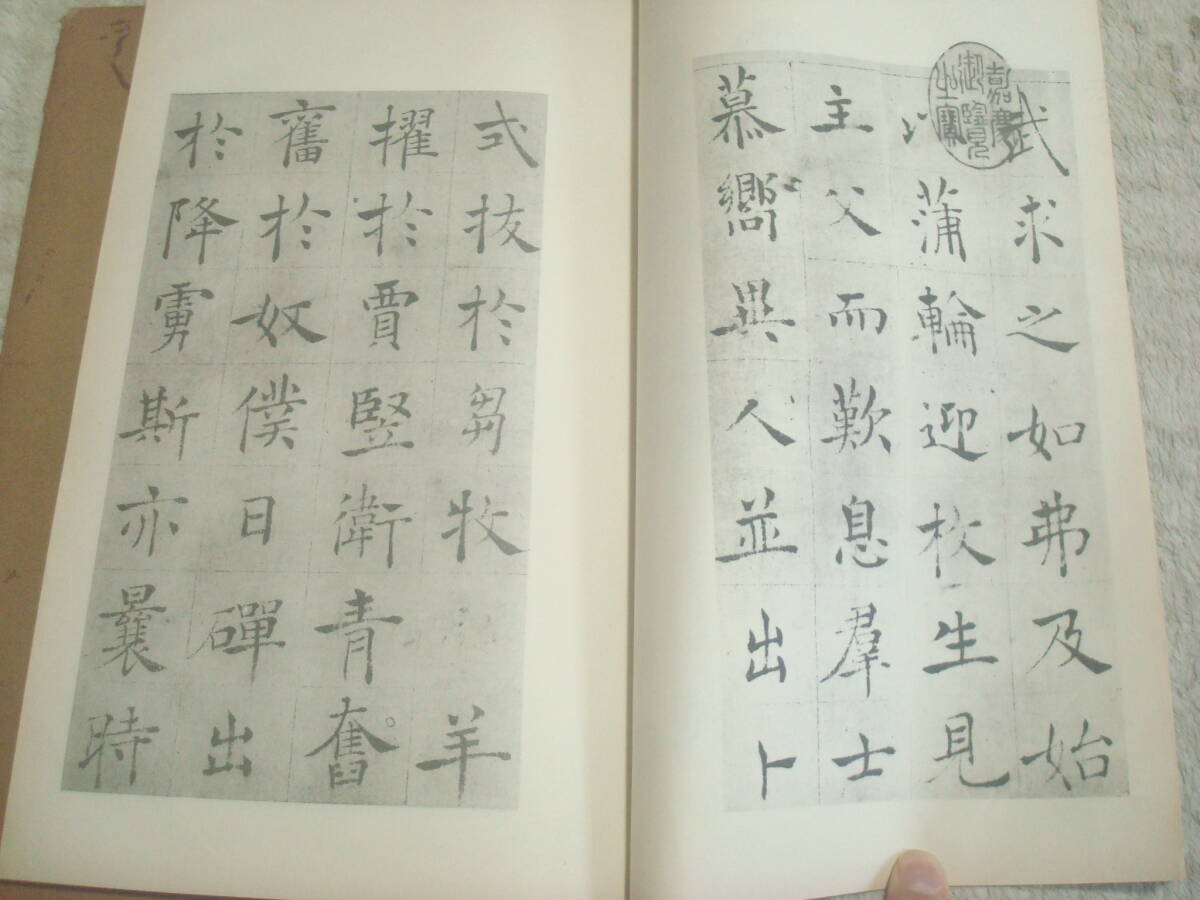 嘉慶
御覽
之寶
武求之如弗及始
以蒲輪迎枚生見
主父而歎息羣士
慕嚮異人並出卜
式拔於芻牧羊
擢於賈竪衛青奮
奮於奴僕日磾出
於降虜斯亦曩時